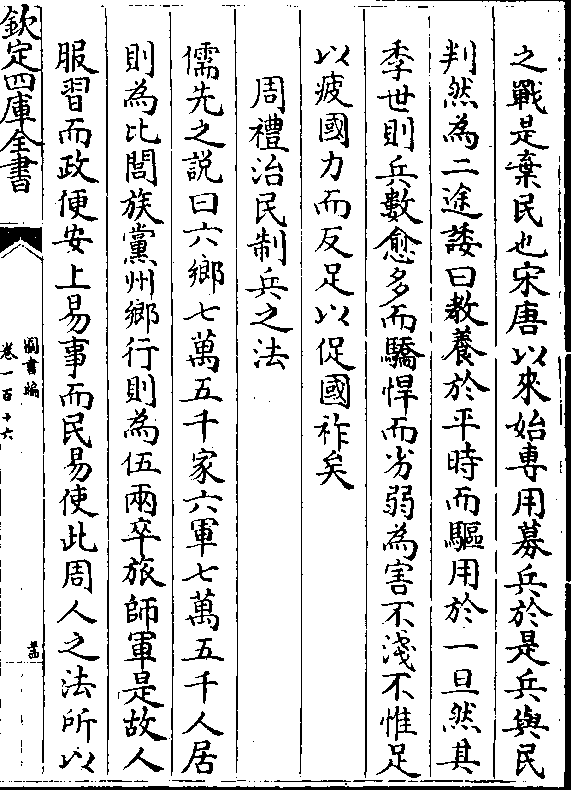 之戰是棄民也宋唐以來始専用募兵於是兵與民
判然為二途諉曰教養於平時而驅用於一旦然其
季世則兵數愈多而驕悍而劣弱為害不淺不惟足
以疲國力而反足以促國祚矣
周禮治民制兵之法
儒先之說曰六鄉七萬五千家六軍七萬五千人居
則為比閭族黨州鄉行則為伍兩卒旅師軍是故人
服習而政便安上易事而民易使此周人之法所以
欽定四庫全書
圖書編
卷一百十六